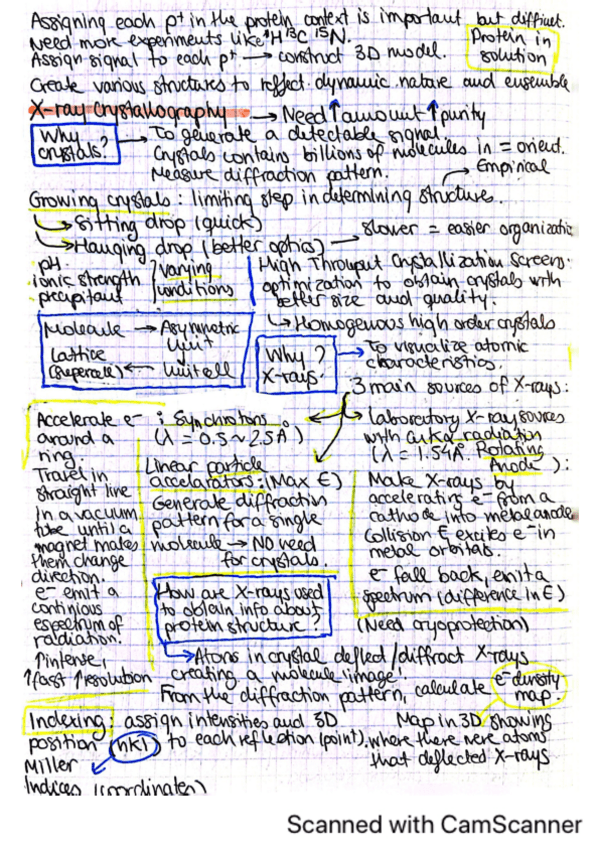 Assigning each p+ in the protein context is important but difficult.
Need more experiments like ¹H ¹³C ¹⁵N.
Assign signal to each p+ → construct 3D model.
Protein in
solution
Create various structures to reflect dynamic nature and ensemble
X-ray Crystallography → Need ↑amount ↑purity
Why
crystals?
→ To generate a detectable signal.
Crystals contains billions of molecules in = orient.
Measure diffraction pattern.
→ Empirical
Growing crystals: limiting step in determining structure.
→ Sitting drop (quick)
→ Hanging drop (better optics) → slower = easier organizatio
pH
ionic strength
precipitant
varying
conditions
High Throuput Crystallization Screens:
optimization to obtain crystals with
better size and quality.
→ Homogenous high order crystals
Molecule → Asymmetric
Unit
Lattice
(supercell) ← Unit cell
Why ?
X-rays
→ To visualize atomic
characteristics.
3 main sources of X-rays:
Accelerate e-
around a
ring.
Travel in
straight line
in a vacuum
tube until a
magnet makes
them change
direction.
e- emit a
continious
espectrum of
radiation.
↑intense,
↑fast ↑resolution
: Synchrotons.
(λ = 0.5 ~ 2.5Å)
Linear particle
accelarators: (Max E)
Generate diffraction
pattern for a single
molecule → NO need
for crystals.
→ Laboratory X-ray sources
with CuKα radiation
(λ = 1.54Å. Rotating
Anode):
Make X-rays by
accelerating e- from a
cathode into metal anode
Collision E excites e- in
metal orbitals.
e- fall back, emit a
spectrum (difference in E)
(Need cryoprotection)
How are X-rays used
to obtain info about
protein structure?
→ Atoms in crystal deflect/diffract X-rays
creating a molecule 'image'.
From the diffraction pattern, calculate e- density
map.
Indexing: assign intensities and 3D
position (hkl) to each reflection (point).
Miller
Indices (coordinates)
Map in 3D showing
where there were atoms
that deflected X-rays
Scanned with CamScanner